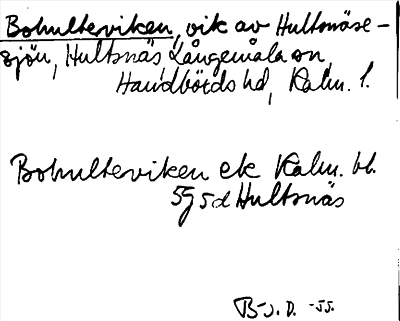 Bohulteviken, vik av Hultsnäse-
sjön, Hultsnäs Långemåla sn,
Handbörds hd, Kalm. l.
Bohulteviken ek Kalm. bl.
5g5d Hultsnäs
B-J. D. -55.